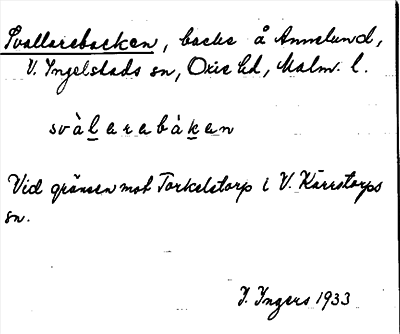 Svallarebacken, backe å Annelund,
V. Ingelstads sn, Oxie hd, Malm. l.
svàlarabákan
Vid gränsen mot Torkelstorp i V. Kärrstorps
sn.
I. Ingers 1933